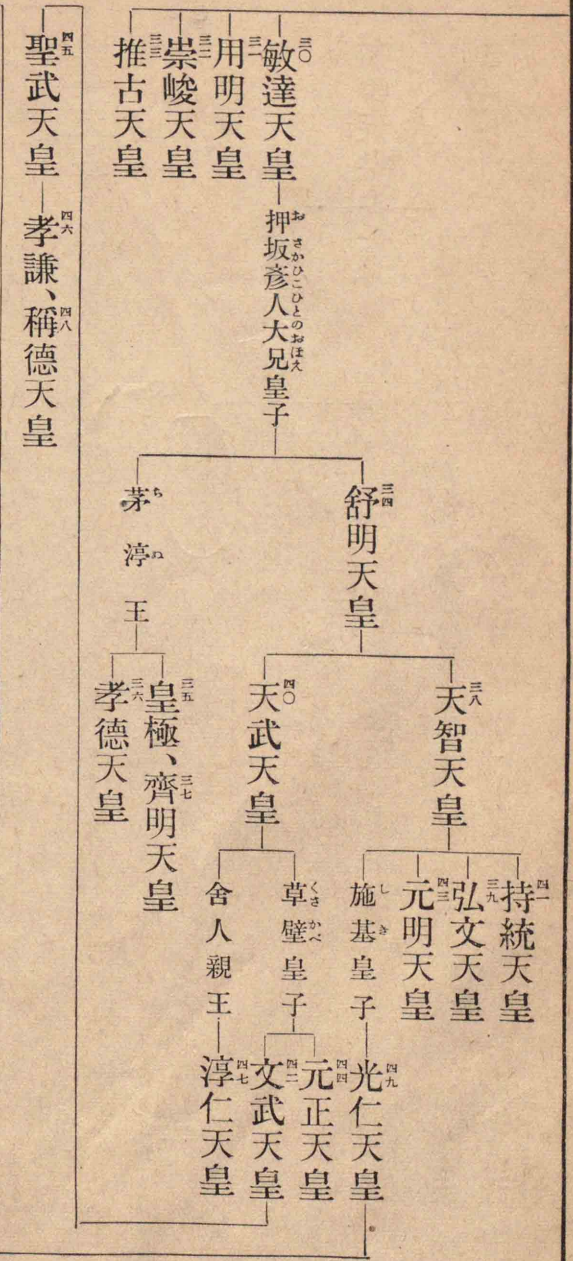 三〇 敏達天皇
押坂彥人大兄皇子
おさかひこひとのおほえ
三一 用明天皇
三二 崇峻天皇
三三 推古天皇
三四 舒明天皇
茅渟王
ちぬ
三八 天智天皇
四〇 天武天皇
三五 皇極、三七 齊明天皇
三六 孝德天皇
四一 持統天皇
三九 弘文天皇
四三 元明天皇
施基皇子
しき
草壁皇子
くさかべ
舍人親王
四九 光仁天皇
四四 元正天皇
四二 文武天皇
四七 淳仁天皇
四五 聖武天皇
四六 孝謙、四八 稱德天皇